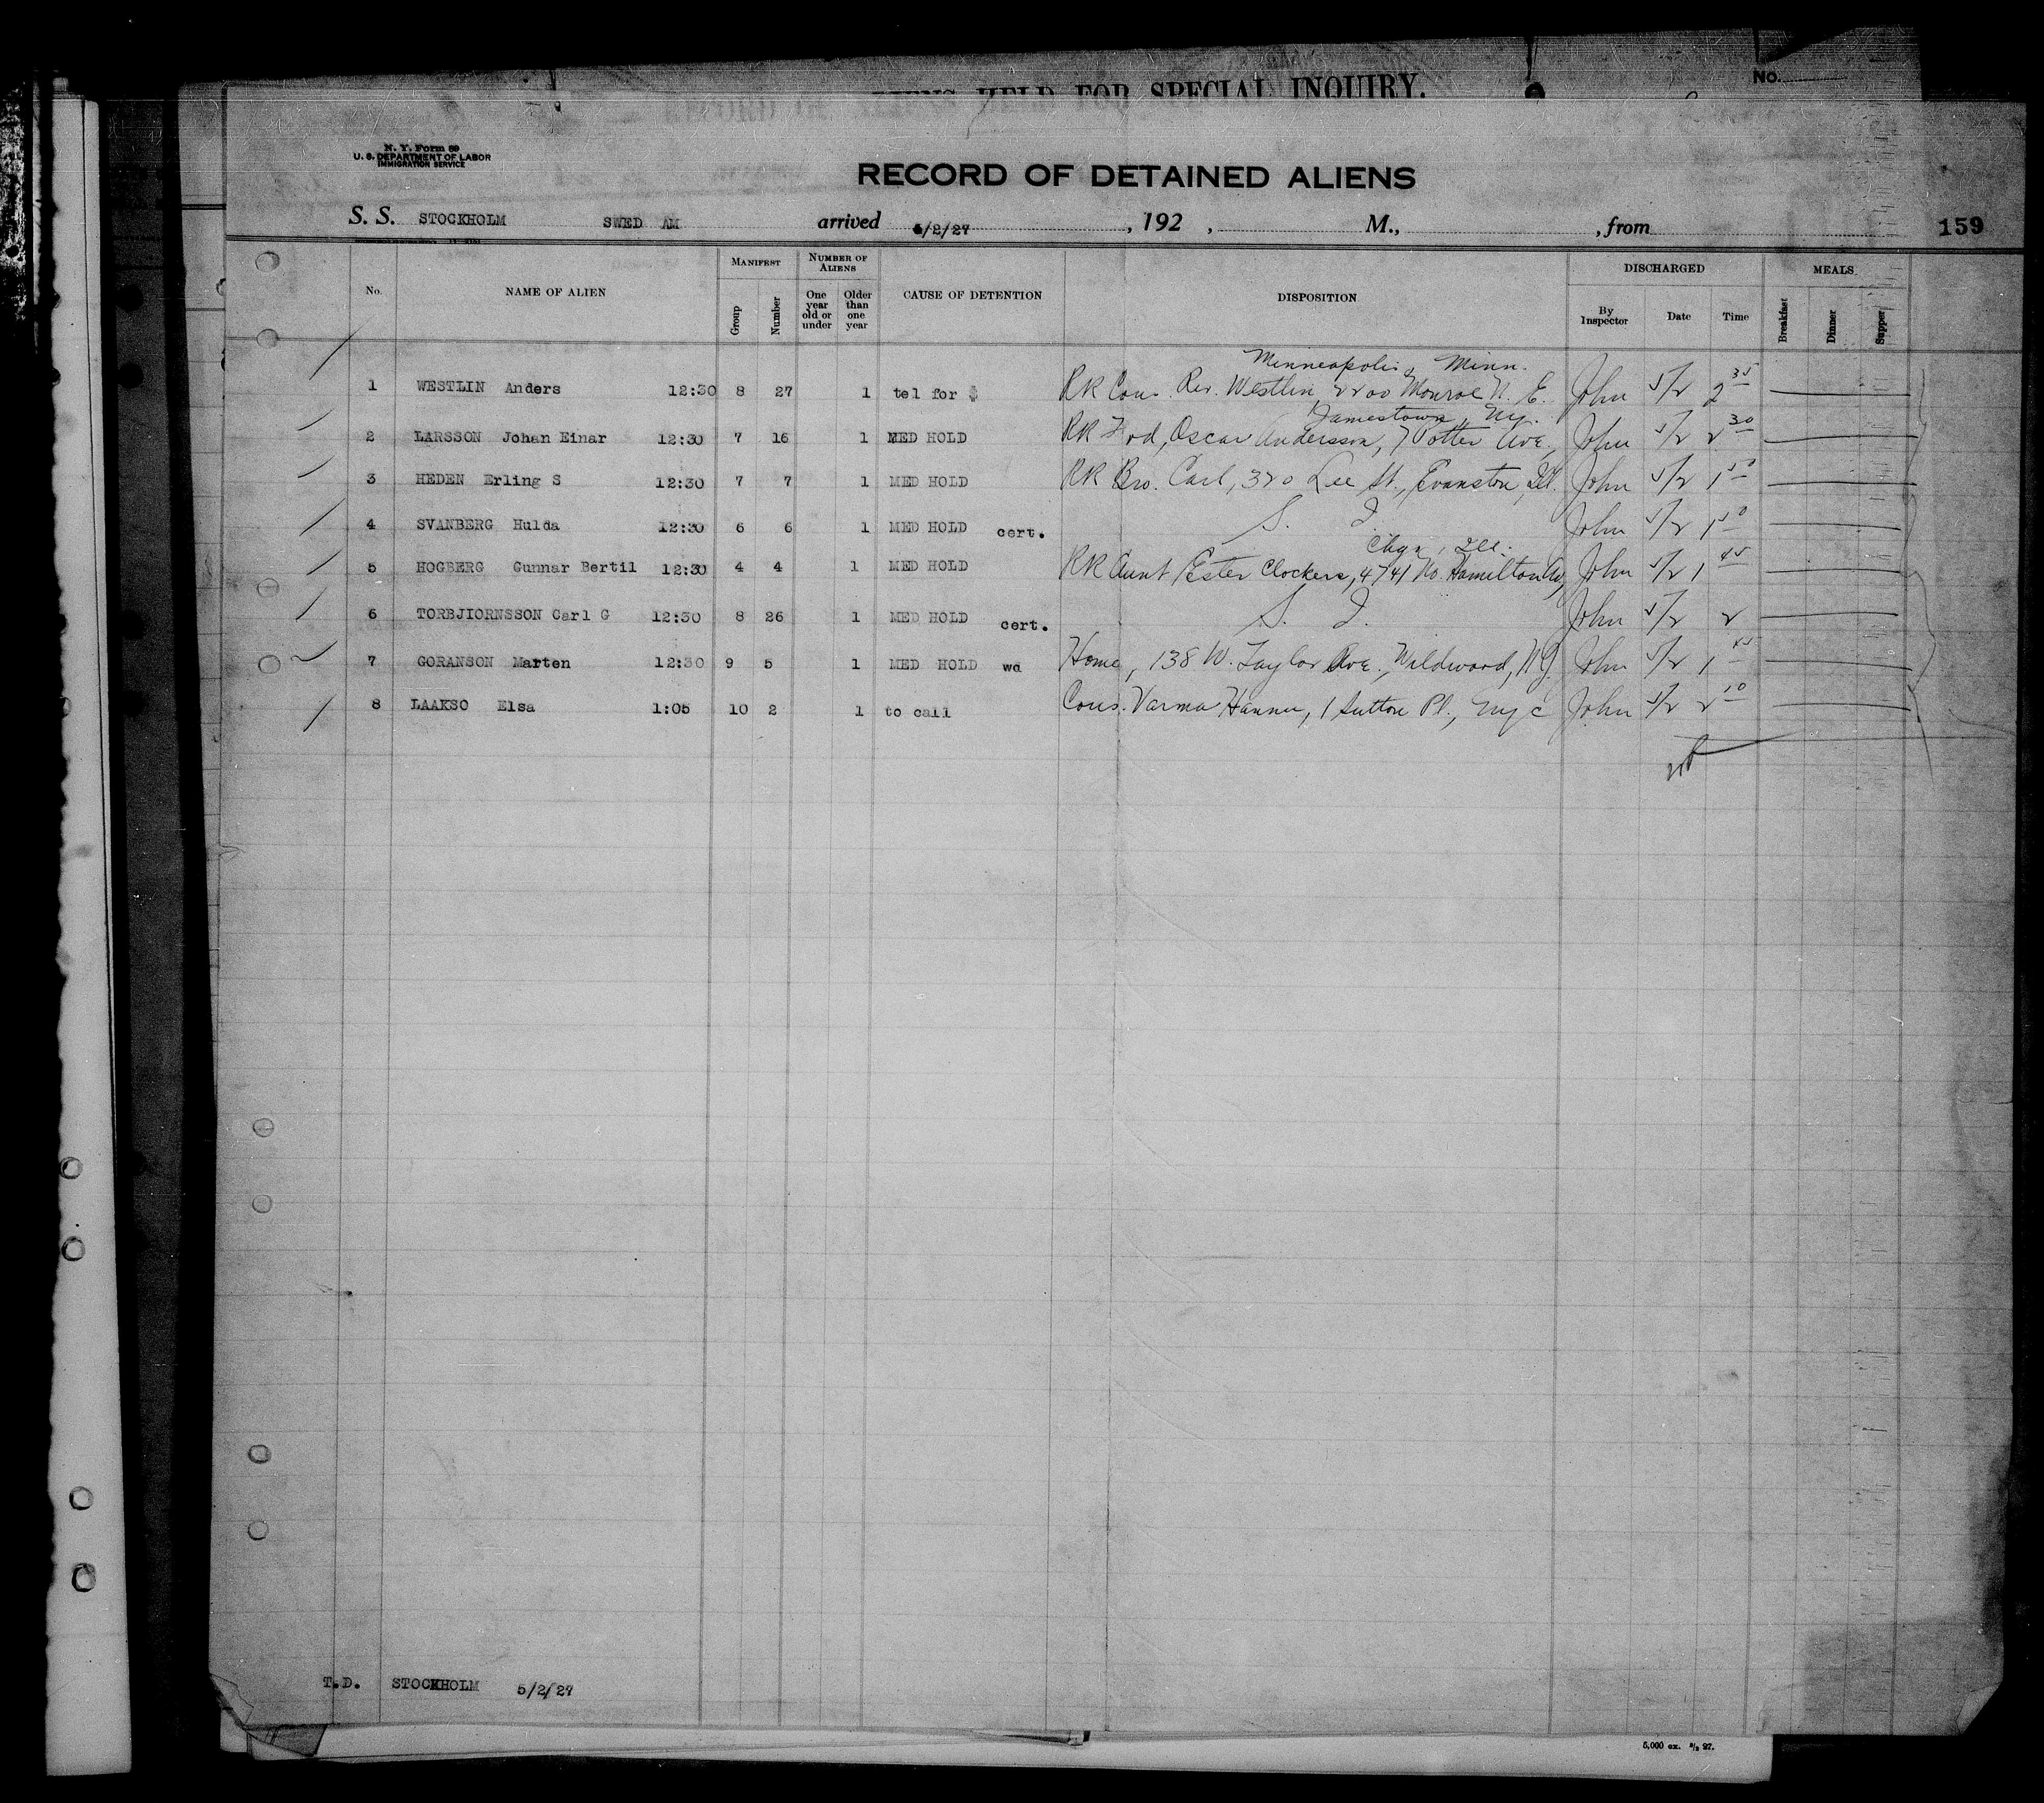 HELD FOR SPECIAL INQUIRY.
No.
N. Y. Form 89
U. S. DEPARTMENT OF LABOR
IMMIGRATION SERVICE
RECORD OF DETAINED ALIENS
S. S. STOCKHOLM SWED AM arrived 5/2/27, 192 , M., , from 159
No. NAME OF ALIEN MANIFEST Group Number NUMBER OF ALIENS One year old or under Older than one year CAUSE OF DETENTION DISPOSITION DISCHARGED By Inspector Date Time MEALS Breakfast Dinner Supper
Minneapolis, Minn.
1 WESTLIN Anders 12:30 8 27 1 tel for $ RR Cous. Rev. Westlin, 2200 Monroe N. E. John 5/2 2 35
Jamestown, Ny.
2 LARSSON Johan Einar 12:30 7 16 1 MED HOLD RR Oscar Andersson, 7 Potter Ave, John 5/2 2 30
3 HEDEN Erling S 12:30 7 7 1 MED HOLD RR Bro. Carl, 320 Lee St., Evanston, Ill. John 5/2 1 50
4 SVANBERG Hulda 12:30 6 6 1 MED HOLD cert. S. I. John 5/2 1 50
Chgo, Ill.
5 HOGBERG Gunnar Bertil 12:30 4 4 1 MED HOLD RR Aunt Ester Clockers, 4741 No. Hamilton Av, John 5/2 1 45
6 TORBJIORNSSON Carl G 12:30 8 26 1 MED HOLD cert. S. I. John 5/2 2
7 GORANSON Marten 12:30 9 5 1 MED HOLD wa Home, 138 W. Taylor Ave., Wildwood, NJ. John 5/2 1 45
8 LAAKSO Elsa 1:05 10 2 1 to call Cous. Varma Hannu, 1 Sutton Pl., Nyc John 5/2 2 10
T.D. STOCKHOLM 5/2/27
5,000 ex. 3/2 27.